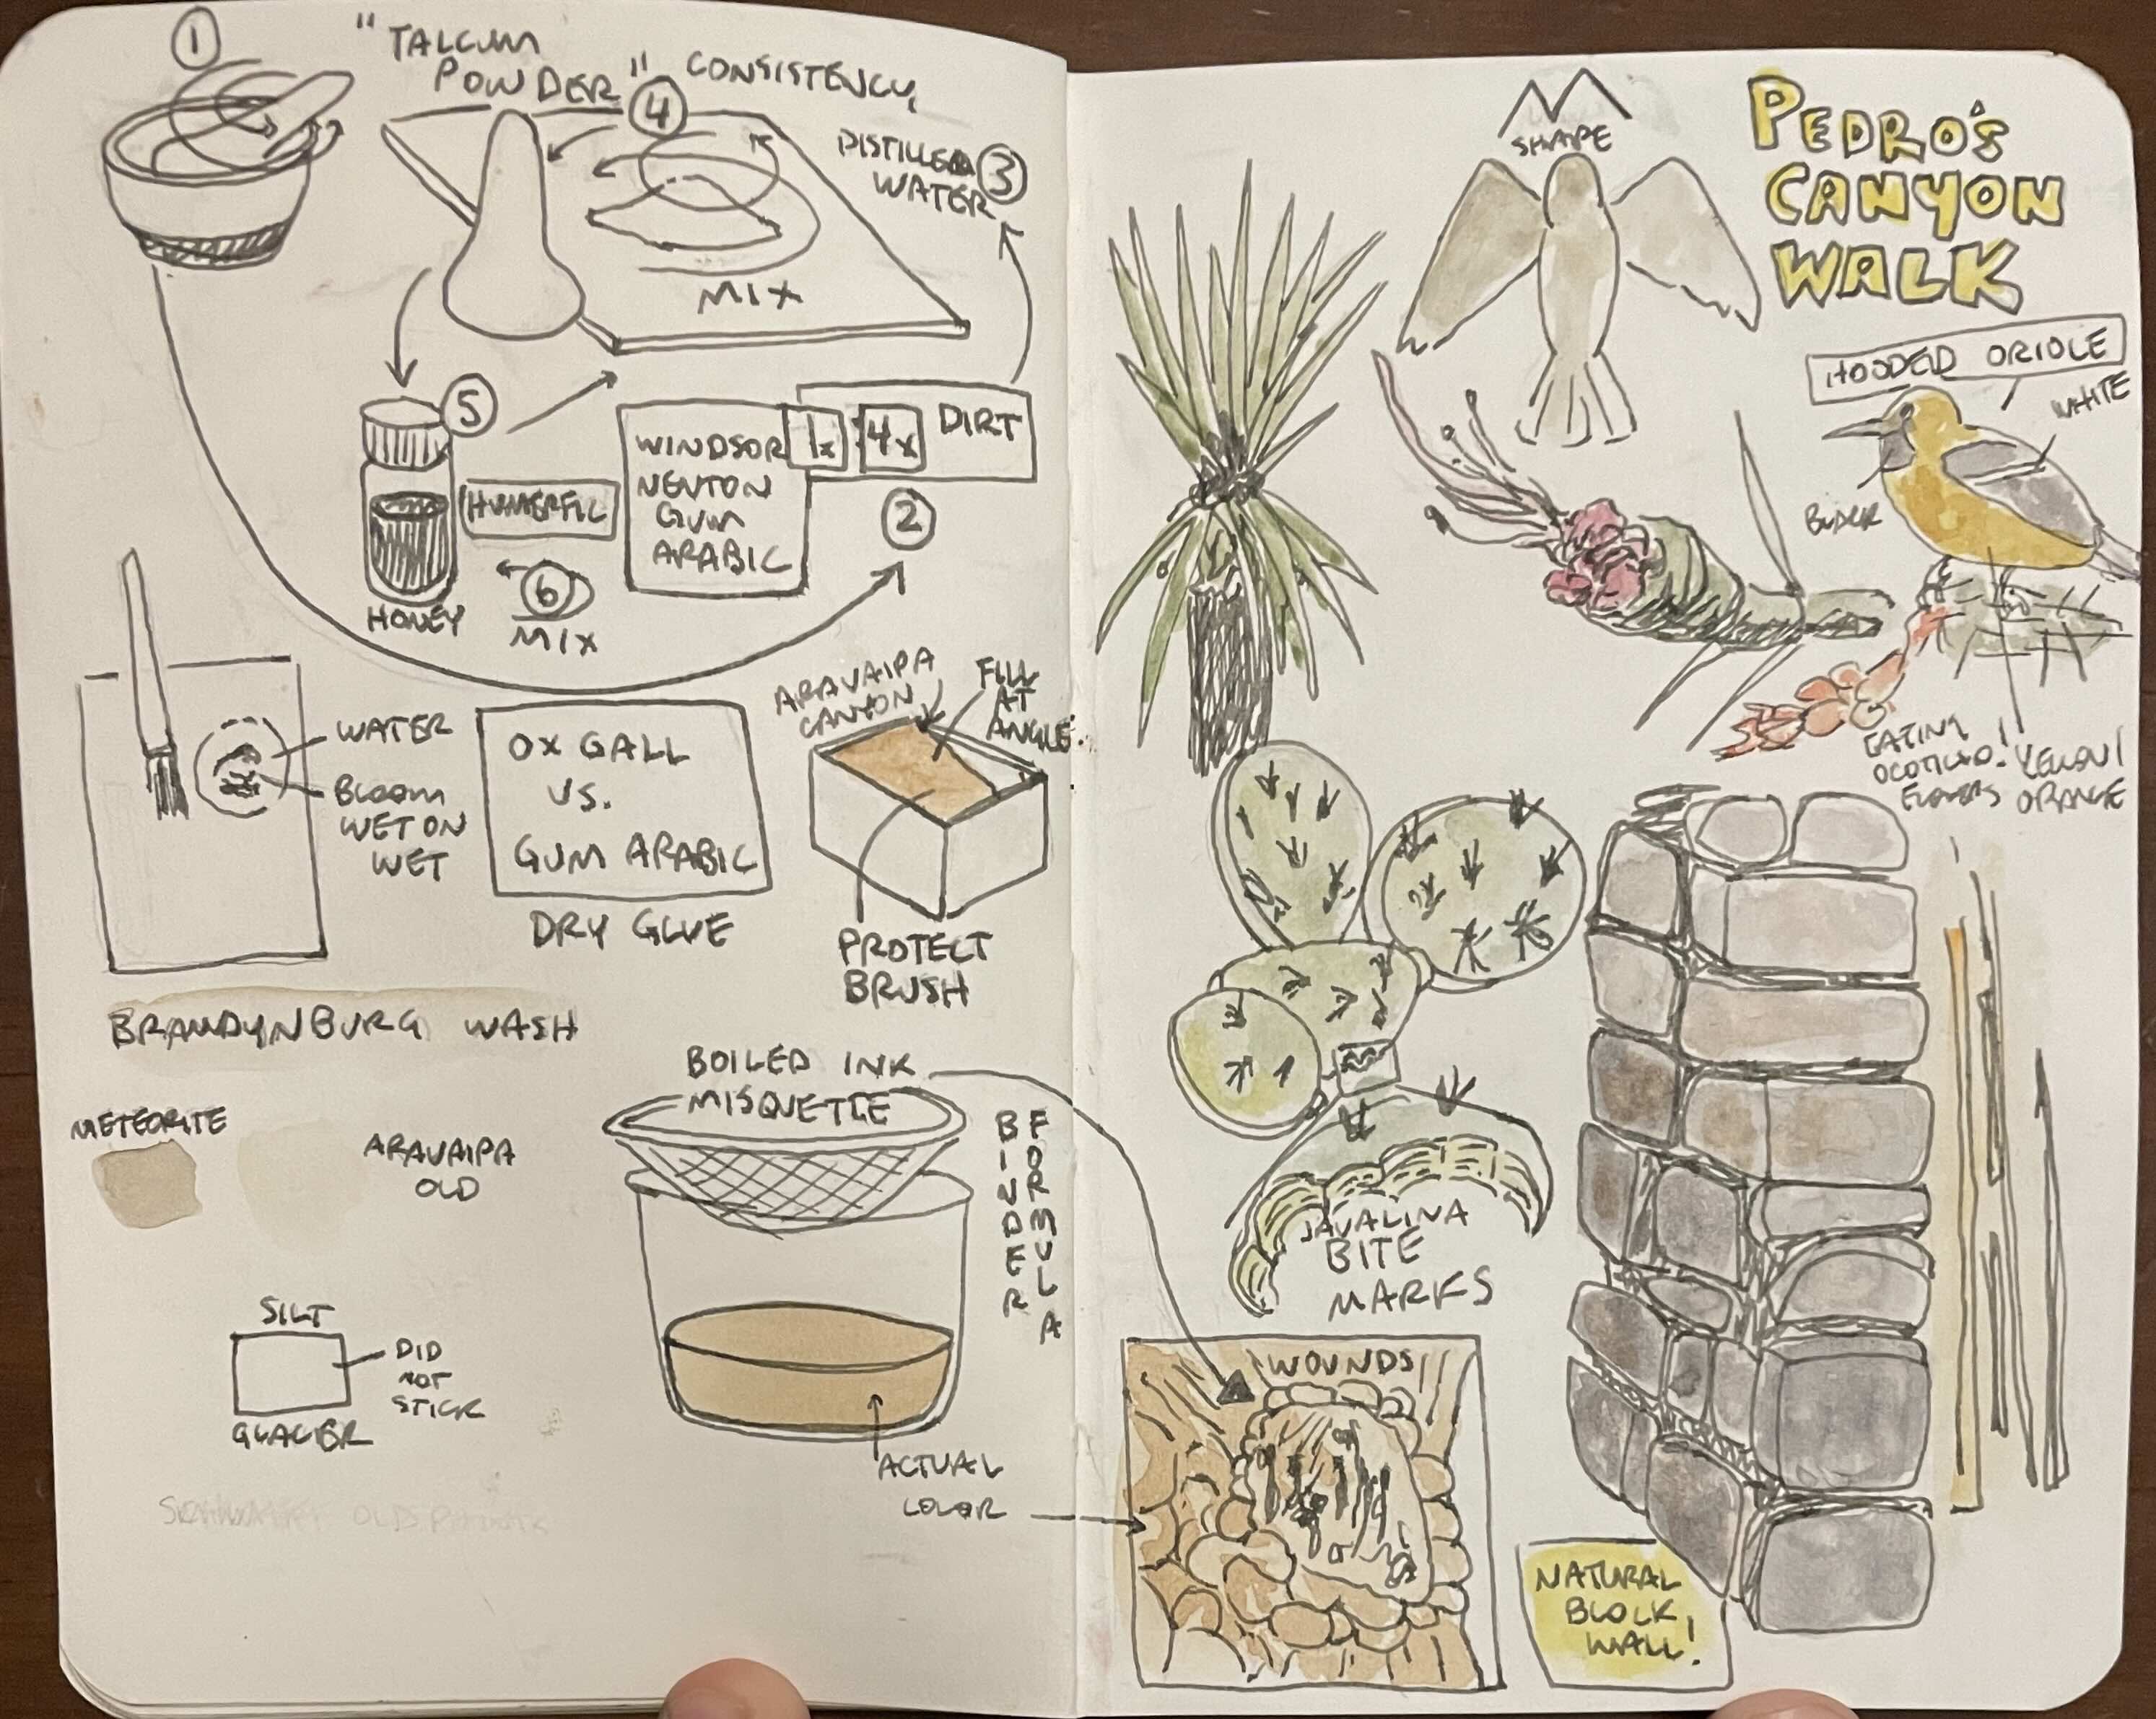 1
"TALCUM
POWDER" CONSISTENCY,
4
DISTILLED
WATER
3
MIX
5
HUMERFIL
HONEY
6
MIX
WINDSOR
NEWTON
GUM
ARABIC
1x : 4x DIRT
2
WATER
BLOOM
WET ON
WET
OX GALL
VS.
GUM ARABIC
DRY GLUE
ARAVAIPA
CANYON
FILL
AT
ANGLE
PROTECT
BRUSH
BRANDYNBURG WASH
METEORITE
ARAVAIPA
OLD
SILT
DID
NOT
STICK
GLACIER
BOILED INK
MISQUETTE
BINDER
FORMULA
ACTUAL
COLOR
PEDRO'S
CANYON
WALK
SHAPE
HOODED ORIOLE
WHITE
BLACK
EATING
OCOTILLO!
FLOWERS
YELLOW/
ORANGE
JAVALINA
BITE
MARKS
WOUNDS
NATURAL
BLOCK
WALL!